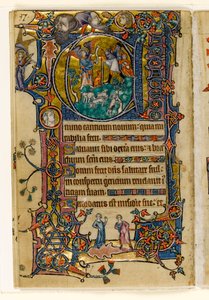 mino canticum nouum: quia mi
rabilia fecit
Saluauit sibi dext̄a eius: et bra
chium scm̄ eius
Notum fecit dn̄s salutare suū
in conspectu gencium reuelauit
iusticiam suam
Recordatus est mis̄cordie sue: et